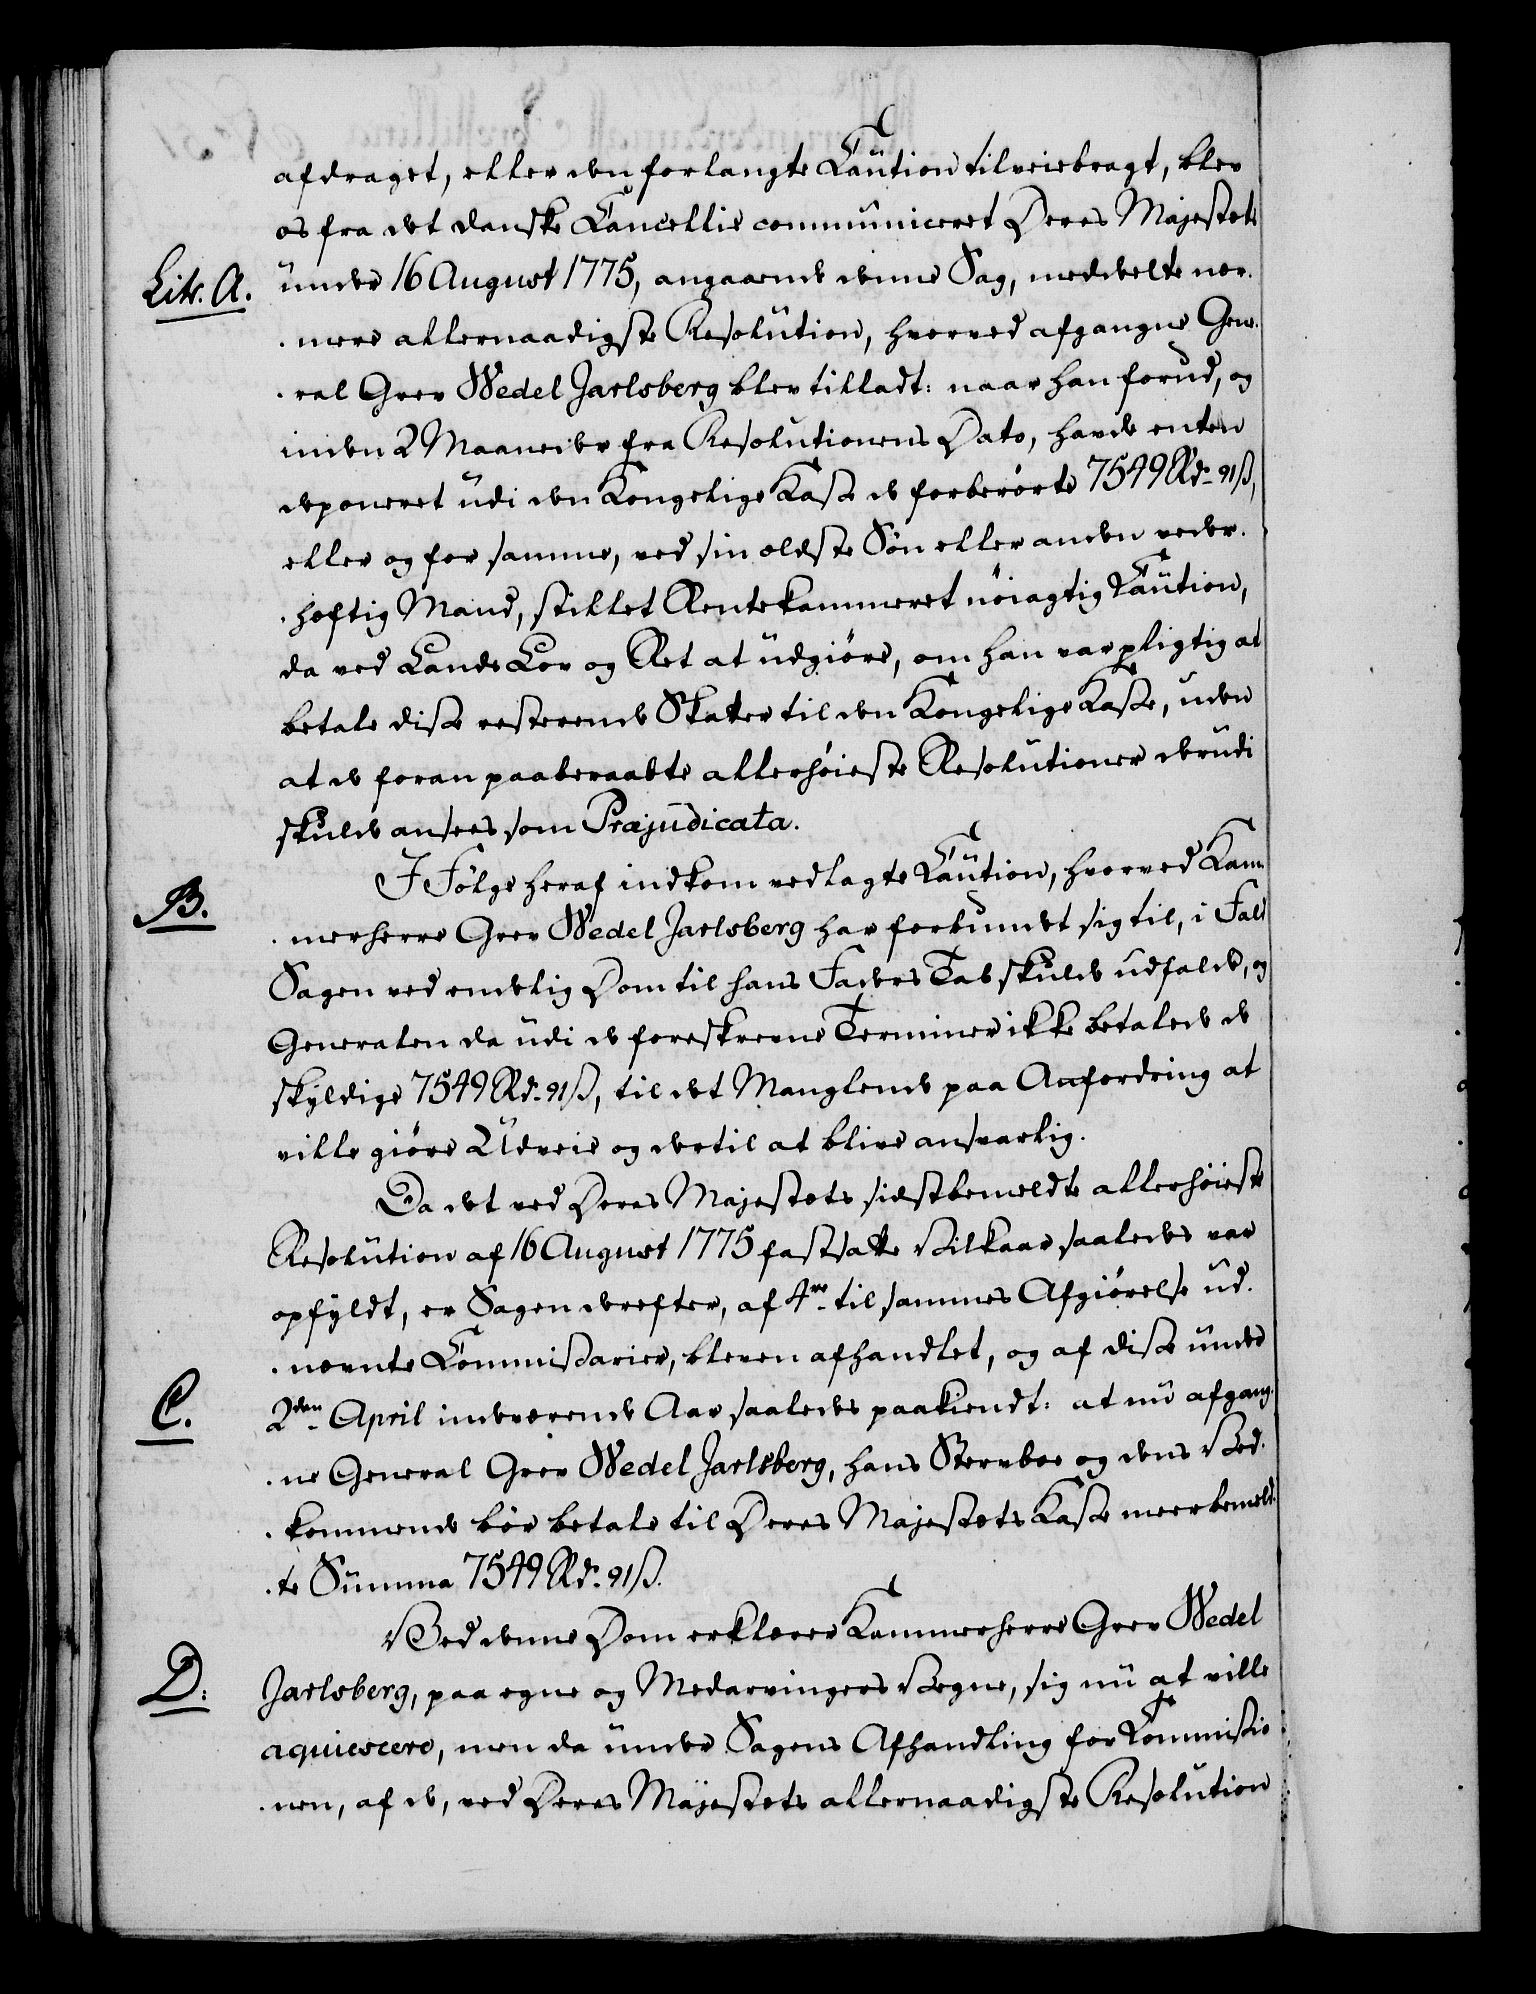 afdraget, eller den forlangte Caution tilveiebragt, blev
os fra det danske Cancellie communiceret Deres Majestets
Litr. A. under 16 August 1775, angaaende denne Sag, meddelte nær-
mere allernaadigste Resolution, hvorved afgangne Gene-
ral Grev Wedel Jarlsberg blev tilladt: naar han forud, og
inden 2 Maaneder fra Resolutionens Dato, havde enten
deponeret udi den Kongelige Kasse de forberørte 7549 Rd. 91 ß,
eller og for samme, ved sin ældste Søn eller anden veder-
hæftig Mand, stillet Rentekammeret nöiagtig Caution,
da ved Lands Lov og Ret at udgiöre, om han var pligtig at
betale disse resterende Skatter til den Kongelige Kasse, uden
at de foran paaberaabte allerhöieste Resolutioner derudi
skulde ansees som Præjudicata.
B. I Fölge heraf indkom vedlagte Caution, hvorved Kam-
merherre Grev Wedel Jarlsberg har forbundet sig til, i Fald
Sagen ved endelig Dom til hans Faders Tab skulde udfalde, og
Generalen da udi de foreskrevne Terminer ikke betalede de
skyldige 7549 Rd. 91 ß, til det Manglende paa Anfordring at
ville giöre Udveie og dertil at blive ansvarlig.
Da det ved Deres Majestets sidstbemeldte allerhöieste
Resolution af 16 August 1775 fastsatte Vilkaar saaledes var
opfyldt, er Sagen derefter, af 4re til sammes Afgiörelse ud-
nævnte Commissarier, bleven afhandlet, og af disse under
C. 2den April indeværende Aar saaledes paakiendt: at nu afgang-
ne General Grev Wedel Jarlsberg, hans Stervboe og dens Ved-
kommende bör betale til Deres Majestets Kasse meerbemeld-
te Summa 7549 Rd. 91 ß.
Ved denne Dom erklærer Kammerherre Grev Wedel
D: Jarlsberg, paa egne og Medarvingers Vegne, sig nu at ville
aquiescere, men da under Sagens Afhandling for Commissio-
nen, af de, ved Deres Majestets allernaadigste Resolution